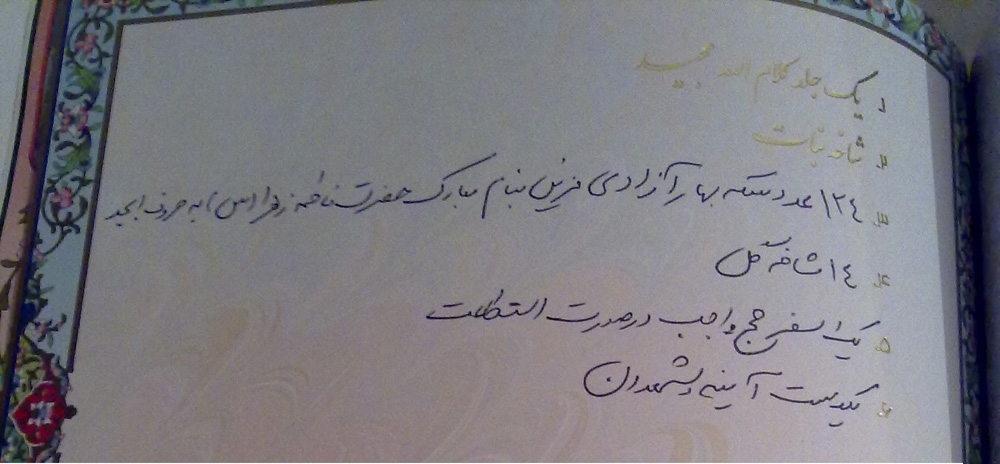 ۱ یک جلد کلام الله مجید
۲ شاخه نبات
۳ ۱۳٤ عدد سکه بهار آزادی مزین بنام مبارک حضرت فاطمه زهرا (س) به حروف ابجد
٤ ۱٤ شاخه گل
۵ یک سفر حج واجب در صورت استطاعت
۶ یکدست آینه و شمعدان